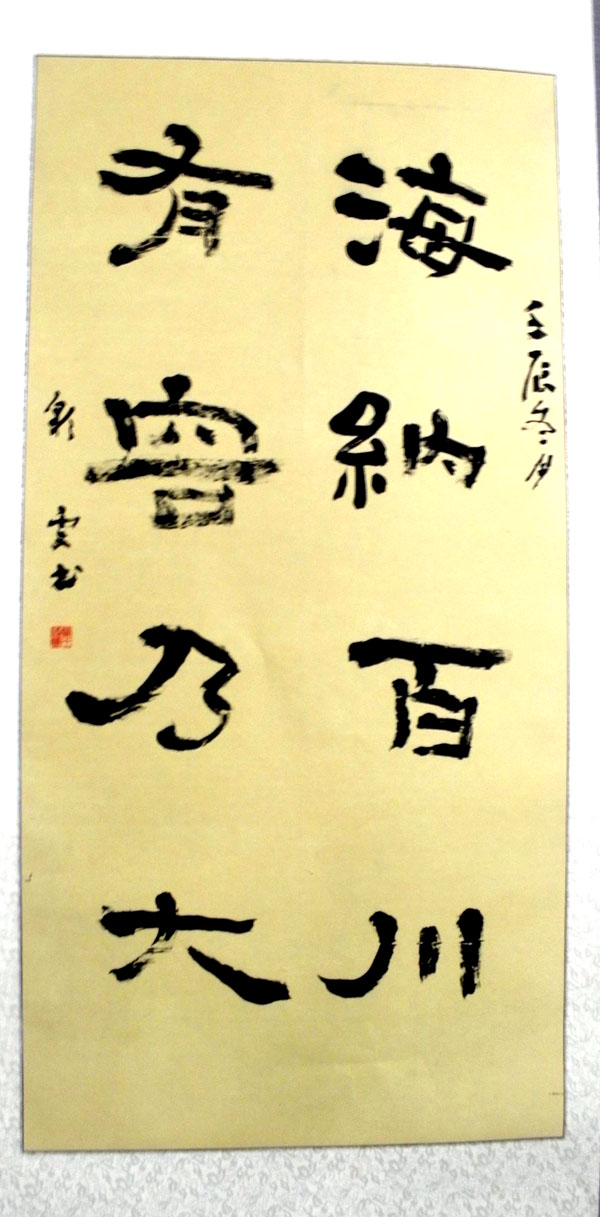 壬辰冬月
海納百川
有容乃大
雲书